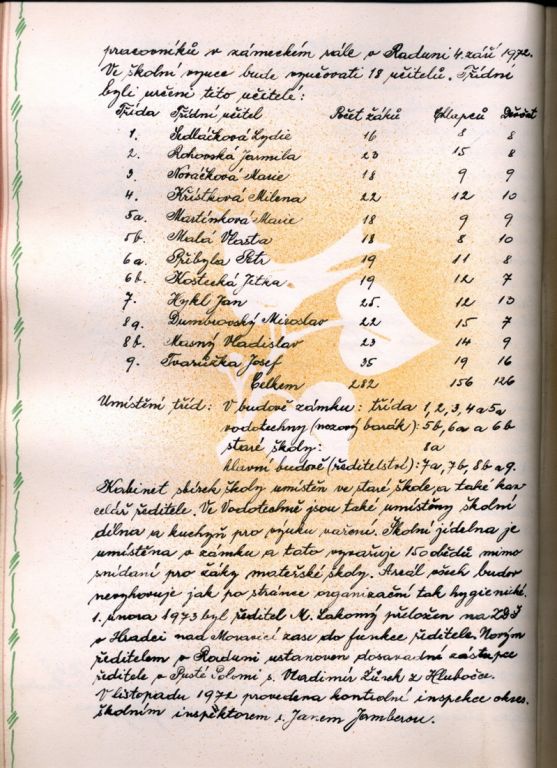 pracovníků v zámeckém sále v Raduni 4. září 1972.
Ve školní výuce bude vyučovati 18 učitelů. Třídní
byli určeni tito učitelé:
Třída Třídní učitel Počet žáků Chlapců Děvčat
1. Sedláčková Lydie 16 8 8
2. Rohovská Jarmila 23 15 8
3. Nováčková Marie 18 9 9
4. Křístková Milena 22 12 10
5a. Martínková Marie 18 9 9
5b. Malá Vlasta 18 8 10
6a. Přibyla Petr 19 11 8
6b. Kostecká Jitka 19 12 7
7. Hykl Jan 25. 12 13
8a. Dumbrovský Miroslav 22 15 7
8b. Masný Vladislav 23 14 9
9. Tvarůžka Josef 35 19 16
Celkem 282 156 126
Umístění tříd: V budově zámku: třída 1, 2, 3, 4 a 5a
vodotechny (nezový barák): 5b, 6a a 6b
staré školy: 8a
hlavní budově (ředitelství): 7a, 7b, 8b a 9.
Kabinet sbírek školy umístěn ve staré škole, a také kan-
celář ředitele. Ve Vodotechně jsou také umístěny školní
dílna a kuchyň pro výuku vaření. Školní jídelna je
umístěna v zámku a tato vyvařuje 150 obědů mimo
snídaní pro žáky mateřské školy. Areál všech budov
nevyhovuje jak po stránce organizační tak hygienické.
1. února 1973 byl ředitel M. Lakomý přeložen na ZDŠ
v Hradci nad Moravicí zase do funkce ředitele. Novým
ředitelem v Raduni ustanoven dosavadní zástupce
ředitele v Pusté Polomi s. Vladimír Žůrek z Hlubočce.
V listopadu 1972 provedena kontrolní inspekce okres.
školním inspektorem s. Janem Jambersou.